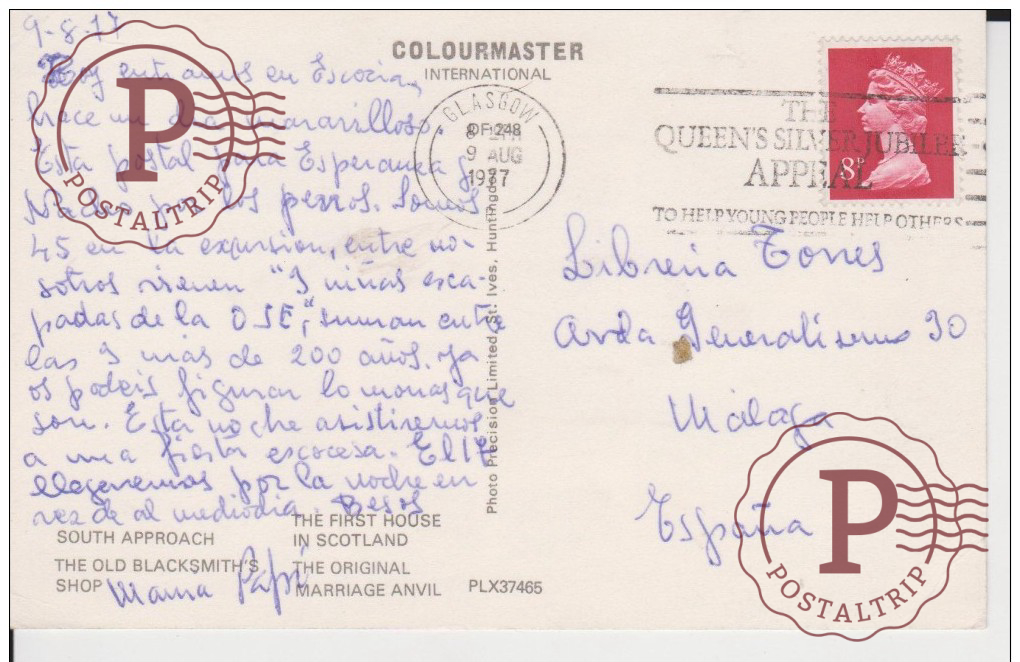 9-8-77
Hoy entramos en Escocia,
hace un día maravilloso.
Esta postal para Esperanza y
por los perros. Somos
45 en la excursion, entre no-
sotros vienen "3 niñas esca-
padas de la OSE", suman entre
las 3 más de 200 años. Ya
os podeis figurar lo monas que
son. Esta noche asistiremos
a una fiesta escocesa. El 17
llegaremos por la noche en
vez de al mediodia. Besos
Mama Papi
COLOURMASTER
INTERNATIONAL
GLASGOW
9 AUG
1977
THE
QUEEN'S SILVER JUBILEE
APPEAL
TO HELP YOUNG PEOPLE HELP OTHERS
8P
Libreria Torres
Avda Generalisimo 30
Málaga
España
Photo Precision Limited, St. Ives, Huntingdon
SOUTH APPROACH
THE FIRST HOUSE
IN SCOTLAND
THE OLD BLACKSMITH'S
SHOP
THE ORIGINAL
MARRIAGE ANVIL
PLX37465
P
POSTALTRIP
P
POSTALTRIP